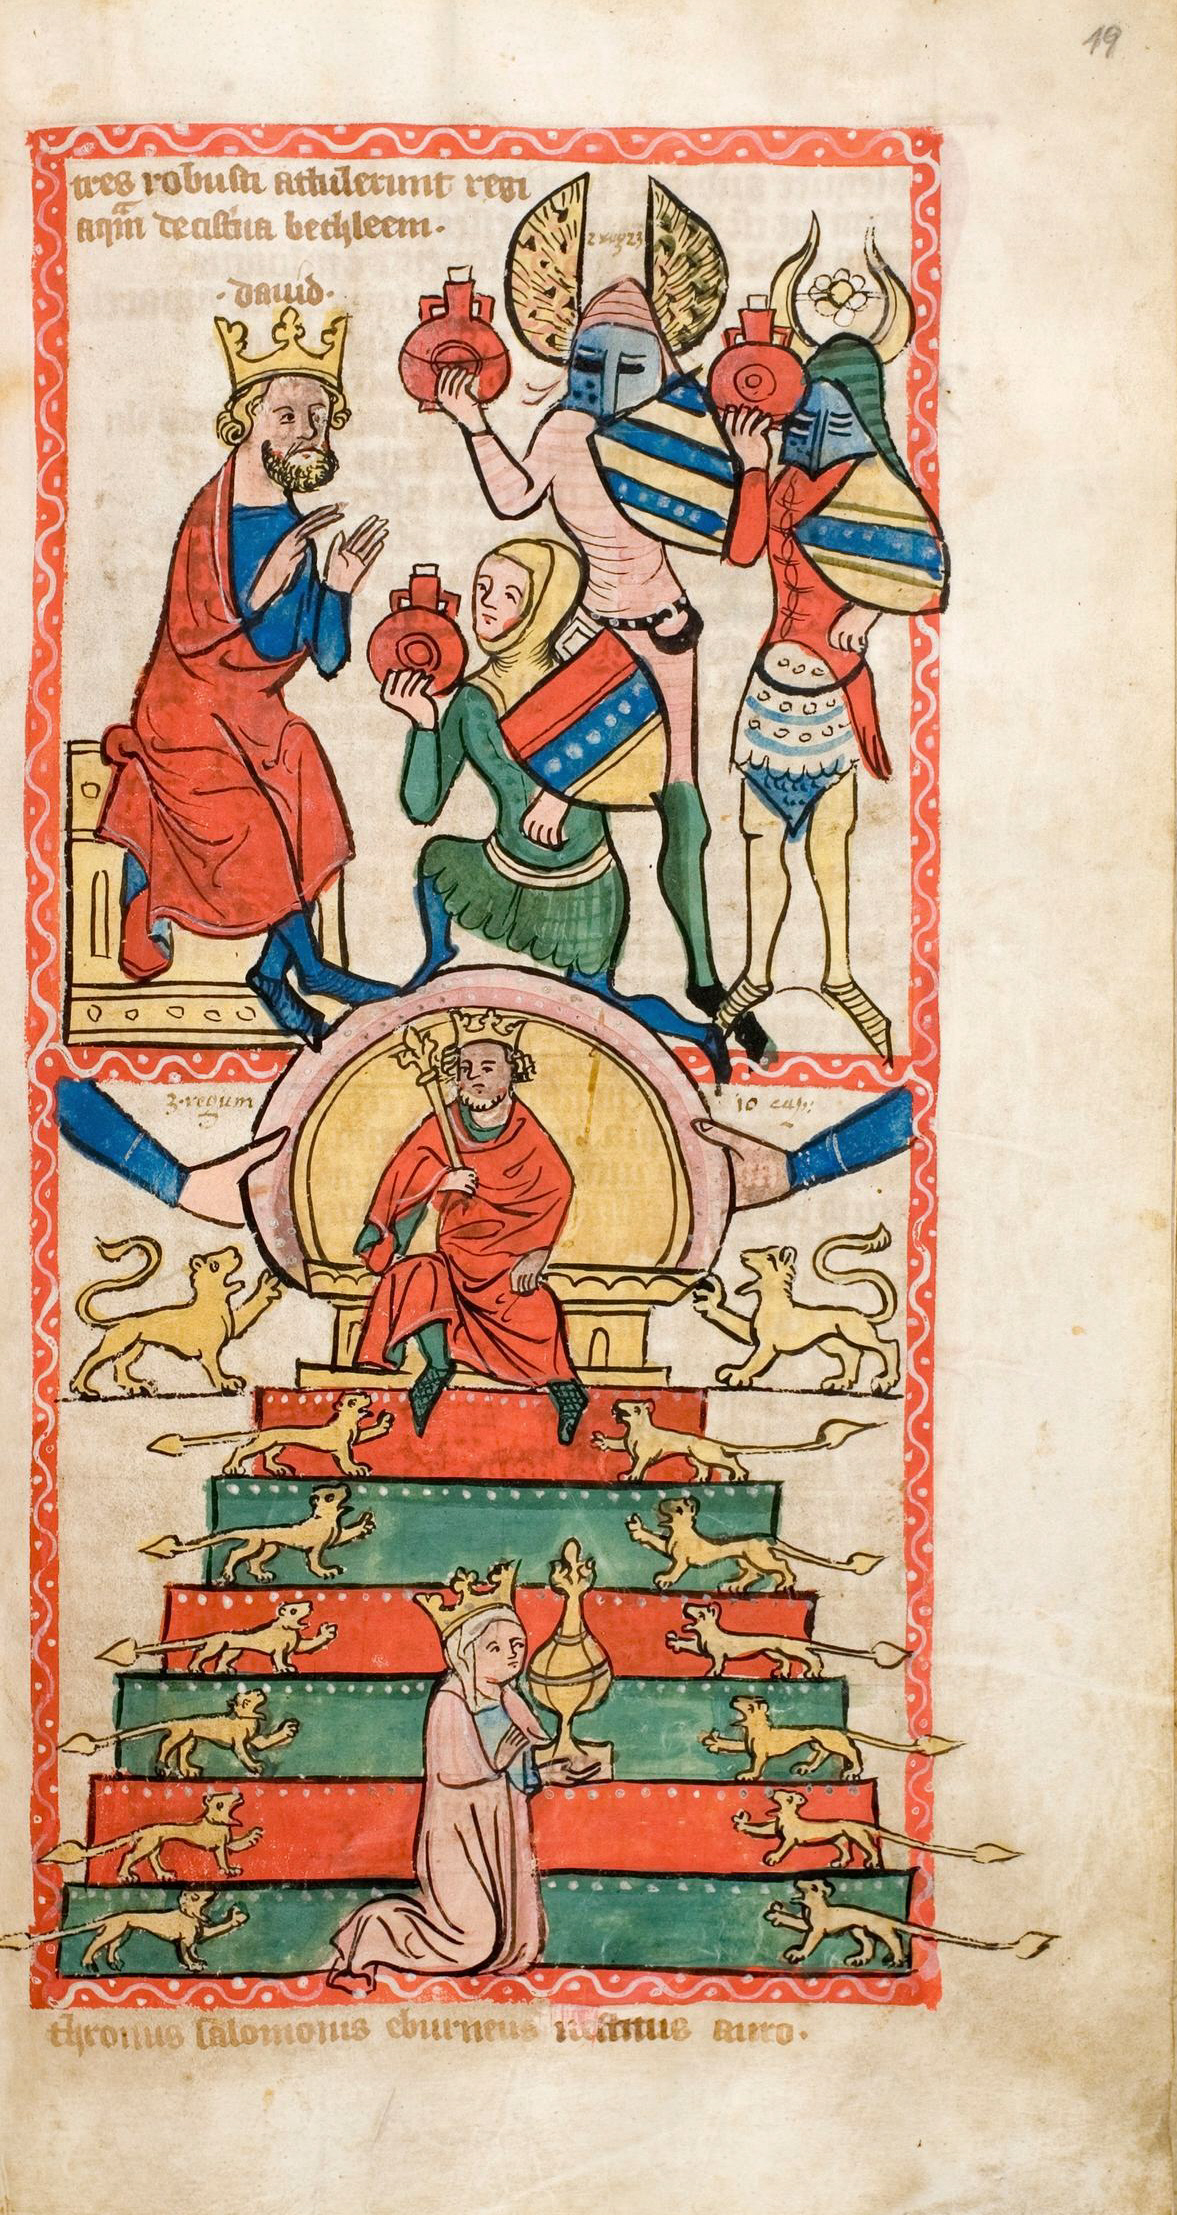 19
tres robusti attulerunt regi
aquā de cist̄na bethleem.
·dauid·
2 reg 23
3·regum
10 cap:
thronus salomonis eburneus uestitus auro.